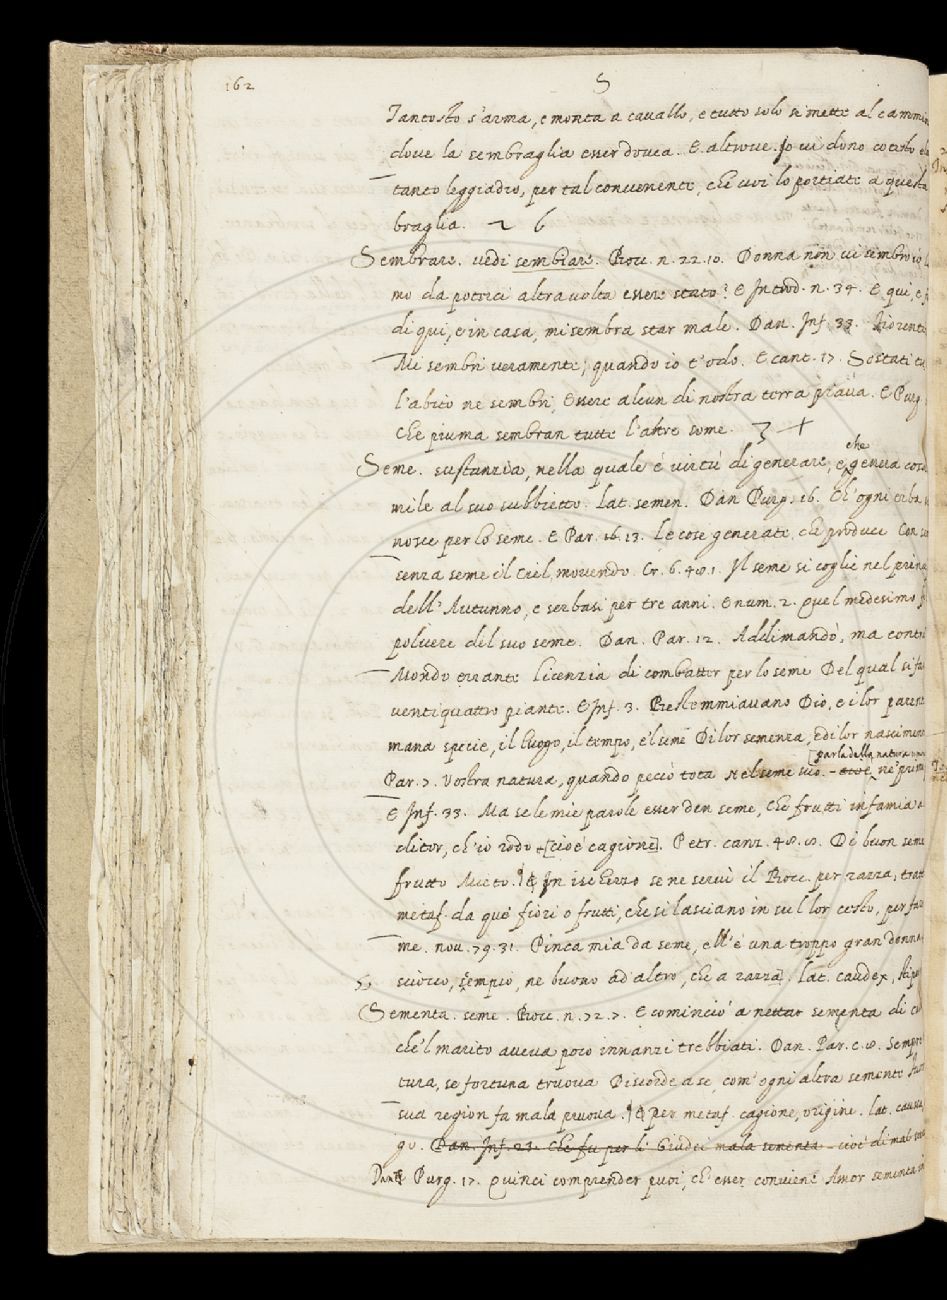 162
S
Tantosto s'arma, e monta a cavallo, e tutto solo si mette al cammin
dove la sembraglia esser dovea. E altrove. Io vi dono cotesto
tanto leggiadro, per tal convenente, che voi lo portiate a questa
braglia. 2 6
Sembrare. vedi sembiare. Bocc. n. 22. 10. Donna non vi sembro io
mo da potervi altra volta essere stato? E Introd. n. 34. E qui, e f
di qui, e in casa, mi sembra star male. Dan. Inf. 33. Fiorenti
Mi sembri veramente, quando io t'odo. E cant. 17. Sostati tu
l'abito ne sembri, Essere alcun di nostra terra prava. E Purg.
Che piuma sembran tutte l'altre some. 3 +
Seme. sustanzia, nella quale è virtù di generare, e, che genera cosa
mile al suo subbietto. Lat. semen. Dan. Purg. 16. Ch'ogni erba si
nosce per lo seme. E Par. 16. 13. Le cose generate, che produce Con se
senza seme il Ciel, movendo. Cr. 6. 48. 1. Il seme si coglie nel prin
dell'Autunno, e serbasi per tre anni. E num. 2. Quel medesimo
polvere del suo seme. Dan. Par. 12. Addimandò, ma contr
Mondo errante licenzia di combatter per lo seme Del qual si fa
ventiquattro piante. E Inf. 3. Bestemmiavano Dio, e i lor paren
mana specie, il luogo, il tempo, e'l seme Di lor semenza, e di lor nascimen
parla della natura
Par. 7. Vostra natura, quando peccò tota Nel seme suo. - cioè, ne' primi
E Inf. 33. Ma se le mie parole esser den seme, Che frutti infamia a
ditor, ch'io rodo [cioè cagione]. Petr. canz. 48. 8. Di buon seme
frutto Mieto. E In ischerzo se ne servì il Bocc. per razza, tratt
metaf. da que' fiori o frutti, che si lasciano in sul lor cesto, per far
me. nov. 79. 31. Pinca mia da seme, ell'è una troppo gran donna
S sciocco, sempio, ne buono ad altro, che a razza. Lat. caudex, stipes
Sementa. seme. Bocc. n. 72. 7. E cominciò a nettar sementa di c
che'l marito aveva poco innanzi trebbiati. Dan. Par. c. 8. Sempre
tura, se fortuna truova Discorde a se, com'ogni altra semente Fuor
sua region fa mala pruova. E per metaf. cagione, origine. Lat. causa,
go. Dan. Inf. 23. Che fu per li Giudei mala sementa - cioè di mal
Dante Purg. 17. Quinci comprender puoi, ch'esser conviene Amor sementa in